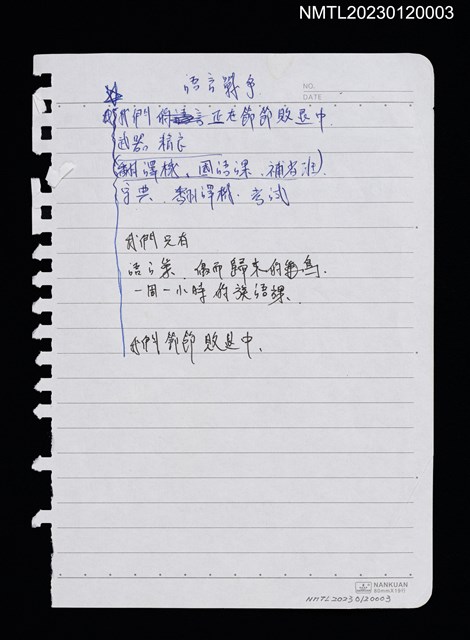 NMTL20230120003
語言戰爭
NO.
DATE
我們的語言正在節節敗退中
武器精良
(翻譯機、國語課、補習班)
字典、翻譯機、考試
我們只有
語言巢、偶而歸來的候鳥、
一周一小時的族語課、
我們節節敗退中、
NANKUAN
NMTL20230120003